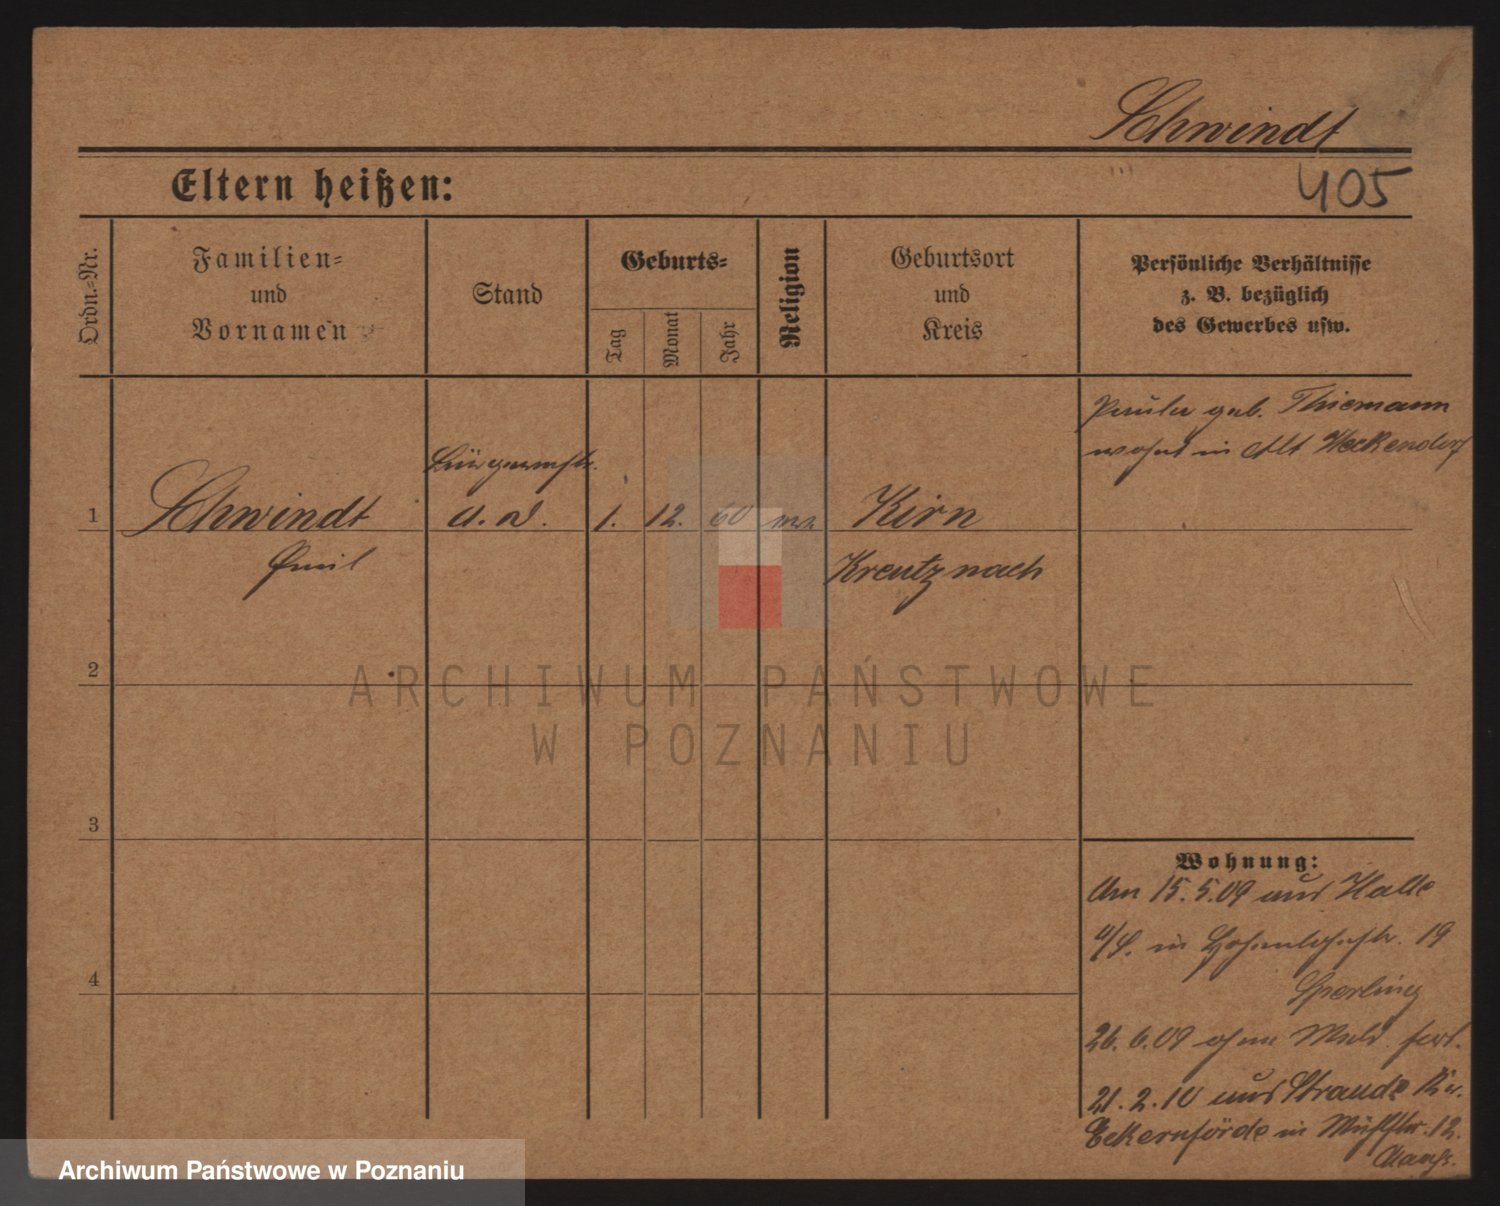 Schwindt
405
Eltern heißen:
Ordn.-Nr.
Familien- und Vornamen
Stand
Geburts-
Tag
Monat
Jahr
Religion
Geburtsort und Kreis
Persönliche Verhältnisse z. B. bezüglich des Gewerbes usw.
Paula geb. Thiemann
wohnt in Alt Heckendorf
Bürgermstr.
1 Schwindt a. D. 1. 12. 60 Kirn
Emil Kreutznach
2
3
4
Wohnung:
Am 15.5.09 aus Halle
a/S. in Hohenlohestr. 19
Sperling
26.6.09 ohne Meld. fort.
21.2.10 aus Strande Kr.
Eckernförde in Mühlstr. 12.
ARCHIWUM PAŃSTWOWE
W POZNANIU
Archiwum Państwowe w Poznaniu